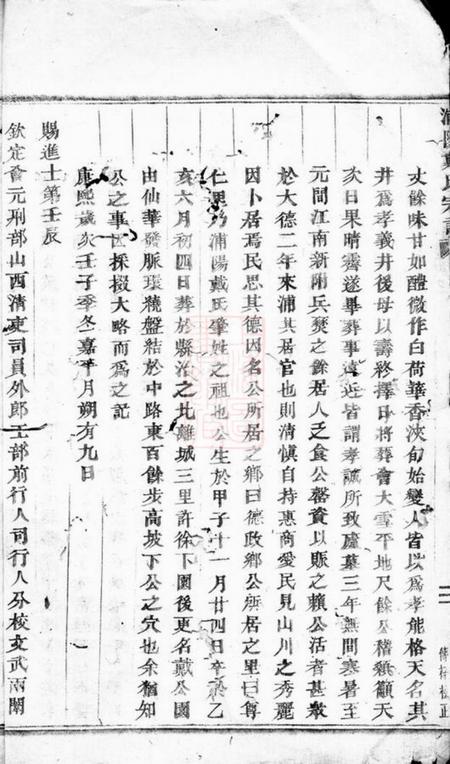 丈餘味甘如醴微作白荷華香浹旬始變人皆以爲孝能格天名其
井爲孝義井後母以壽終擇日將葬會大雪平地尺餘公稽顙籲天
次日果晴霽遂畢葬事遠近皆謂孝誠所致廬墓三年無間寒暑至
元間江南新附兵燹之餘居人乏食公罄資以賑之賴公活者甚衆
於大德二年來浦其居官也則清愼自持惠商愛民見山川之秀麗
因卜居焉民思其德因名公所居之鄉曰德政鄉公所居之里曰尊
仁里乃浦陽戴氏肇姓之祖也公生於甲子十一月廿四日卒
亥六月初四日葬於縣治之北離城三里許徐下園後更名戴公園
由仙華發脈環繞盤結於中路東百餘步高坡下公之穴也余猶知
公之事因採掇大略而爲之記
康熙歲次壬子季冬嘉平月朔有九日
賜進士第壬辰
欽定會元刑部山西清吏司員外郎工部前行人司行人分校文武兩闈